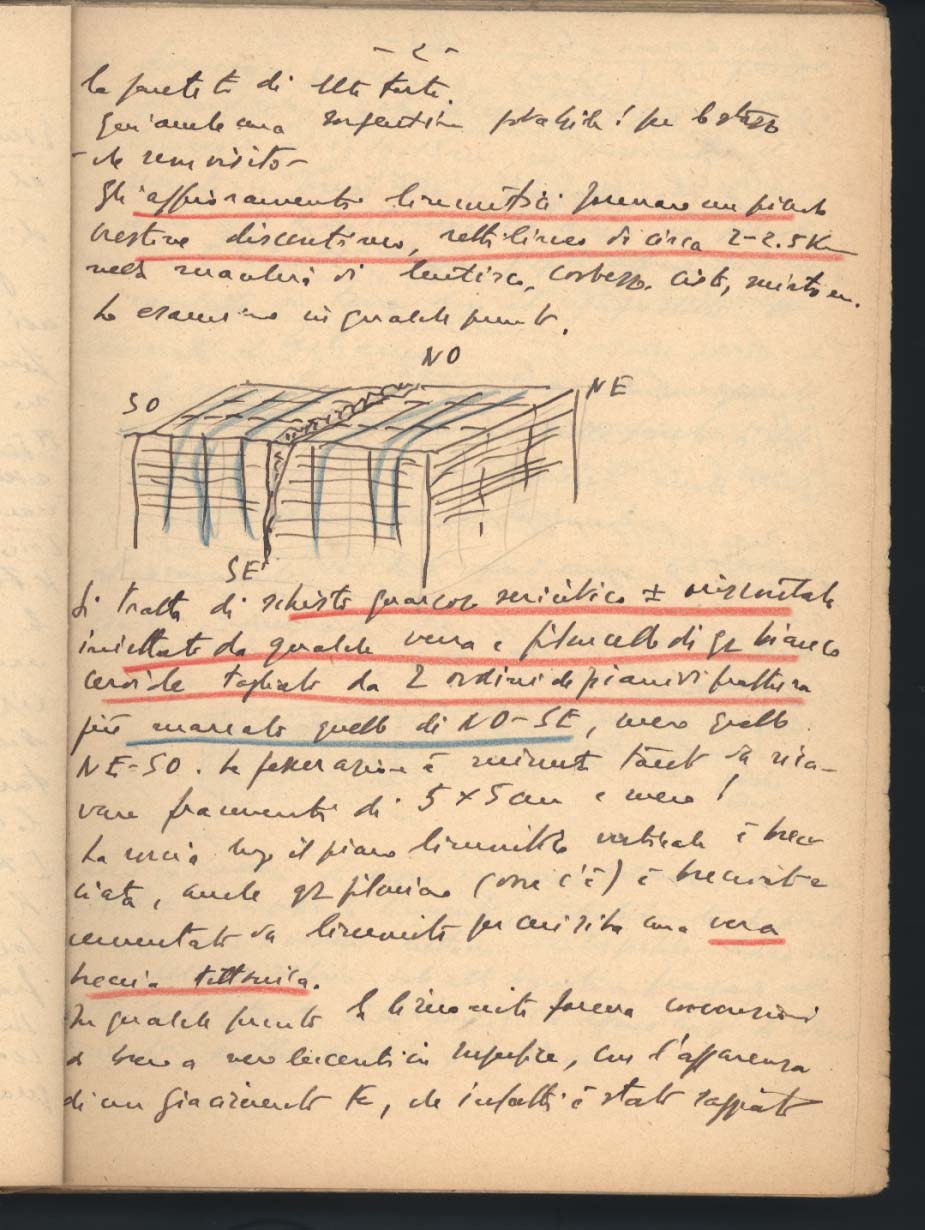 - 2 -
di
Qui anche una sorgentina potabile! per lo stesso
- che non visito -
Gli affioramenti limonitici formano un piano
crestine discontinuo, rettilineo di circa 2-2.5 Km
nella macchia di lentisco, corbezzo, cisto, mirto ecc.
Lo esamino in qualche punto.
NO
SO
NE
SE
Si tratta di schisto quarzoso sericitico ±
iniettato da qualche vena e filoncello di qz bianco
ceroide tagliato da 2 ordini di piani di frattura
più marcato quello di NO-SE, meno quello
NE-SO. La è minuta tanto da rica-
vare frammenti di 5 x 5 cm e meno!
La roccia lungo il piano limonitico verticale è brec
ciata, anche qz filoniano (ove c'è) è brecciato e
cementato da limonite per cui si ha una vera
breccia tettonica.
In qualche punto la limonite forma concrezioni
brune o nere lucenti in superfice, con l'apparenza
di un giacimento Fe, che infatti è stato saggiato